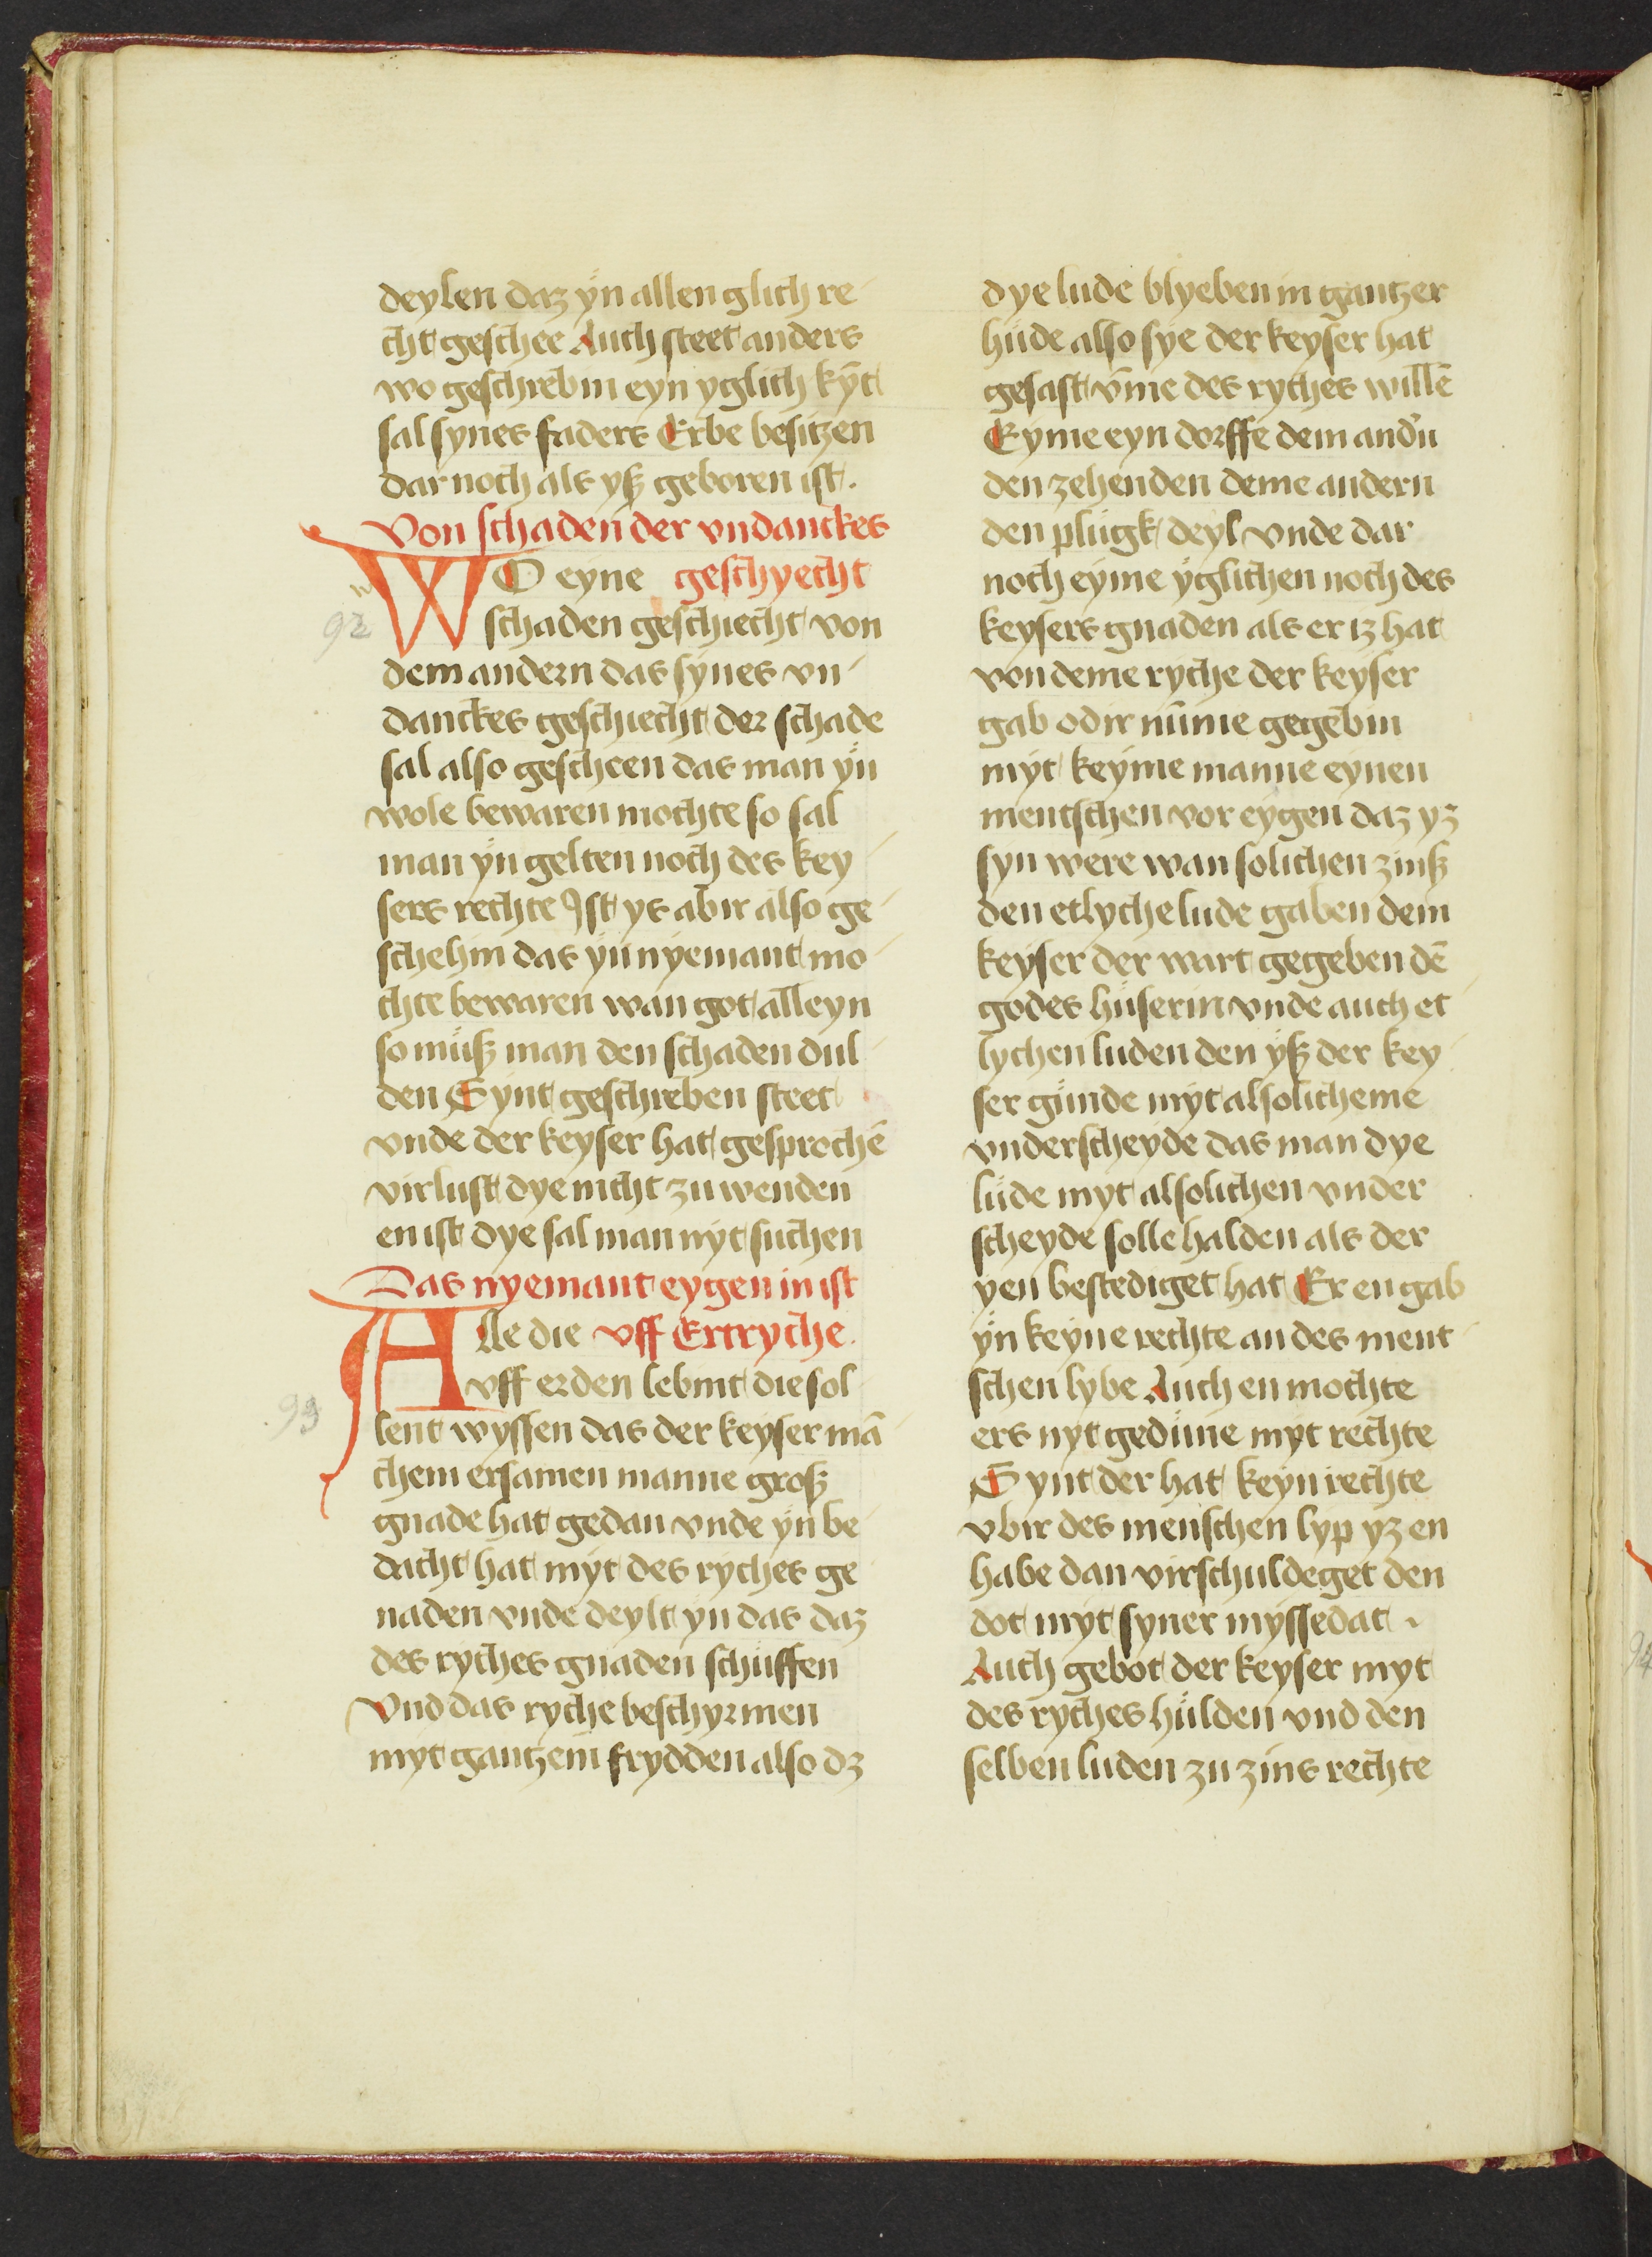 deylen daz yn allen glich re-
cht geschee Auch steet anders
wo geschrebin eyn yglich kyt
sal synes faders Erbe besitzen
dar noch als yß geboren ist.
Von schaden der vndanckes
WO eyne geschyecht
92 schaden geschiecht von
dem andern das synes vn-
danckes geschiecht der schade
sal also gescheen das man yn
wole bewaren mochte so sal
man yn gelten noch des key-
sers rechte Ist ys abir also ge-
schehin das yn nyemant mo-
chte bewaren wan got alleyn
so muß man den schaden dul-
den Synt geschreben steet
vnde der keyser hat gesprochē
virlust dye nicht zu wenden
en ist dye sal man nyt suchen
Das nyemant eygen in ist
Alle die vff Ertryche.
vff erden lebint die sol-
93 lent wyssen das der keyser mā-
chem ersamen manne groß
gnade hat gedan vnde yn be-
dacht hat myt des ryches ge-
naden vnde deylt yn das daz
des ryches gnaden schuffen
Vnd das ryche beschyrmen
myt gantzem frydden also dz
dye lude blyeben in gantzer
hude also sye der keyser hat
gesast vm̄e des ryches willē
Eyme eyn dorffe dem andn
den zehenden deme andern
den plugk deyl vnde dar
noch eyme yglichen noch des
keysers gnaden als er iz hat
von deme ryche der keyser
gab odir num̄e gegebin
myt keyme manne eynen
mentschen vor eygen daz yz
syn were wan solichen zinß
den etlyche lude gaben dem
keyser der wart gegeben dē
godes huserin vnde auch et-
lychen luden den yß der key-
ser gunde myt alsolicheme
vnderscheyde das man dye
lude myt alsolichen vnder
scheyde solle halden als der
yen bestediget hat Er en gab
yn keyne rechte an des ment-
schen lybe Auch en mochte
ers nyt gedune myt rechte
Synt der hat keyn rechte
vbir des menschen lyp yz en
habe dan virschuldeget den
dot myt syner myssedat.
Auch gebot der keyser myt
des ryches hulden vnd den
selben luden zu zins rechte